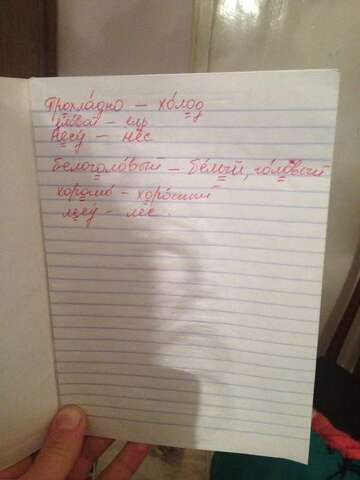 Прохла́дно – хо́лод
– ель
несу́ – нёс
белоголо́вый – бе́лый, го́ловый
хорошо́ – хоро́ший
лесу́ – лес